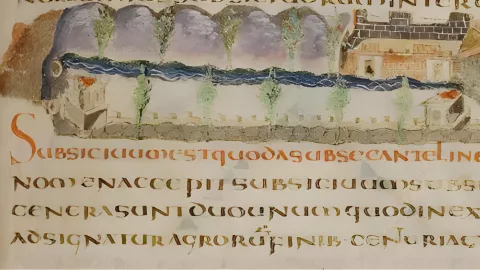 SUBSICIUUMESTQUODASUBSECANTELINE
NOMENACCEPITSUBSICIUUMSUBS
GENERASUNTDUOUNUMQUODINEX
ADSIGNATURAGRORŪFINIB·CENTURIA